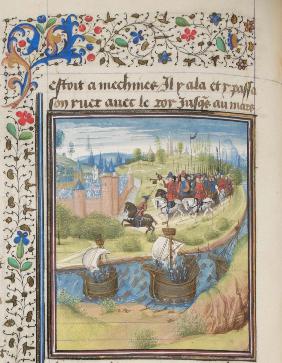 estoit a mechines Il y ala et passa
son ruct auec le roy Jusqs au mare